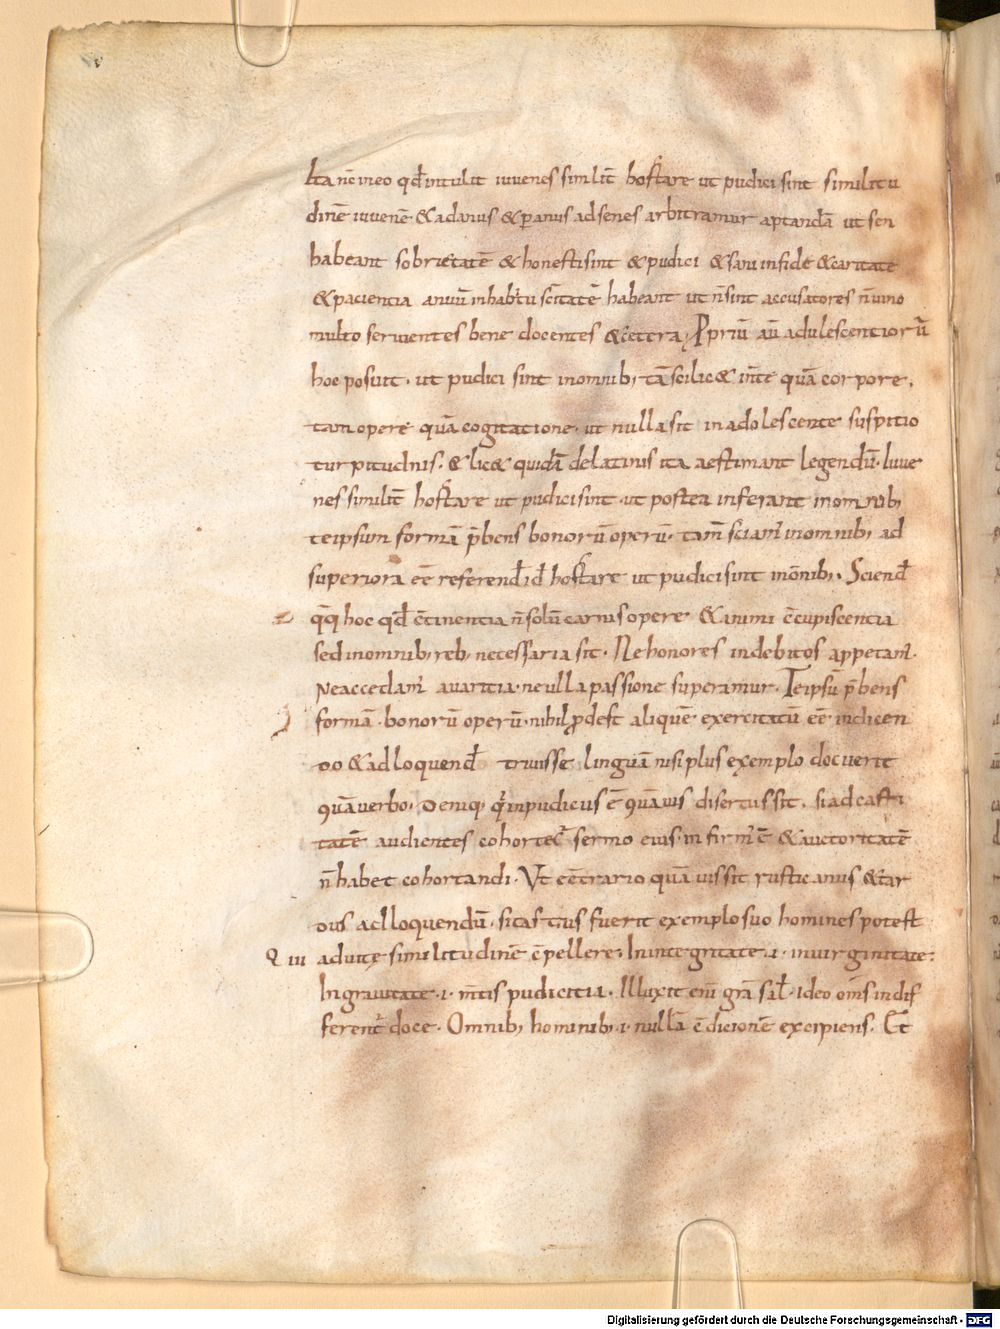 Ita nc̄ in eo qd̄ intulit iuvenes similit̄ hortare ut pudici sint similitu
dinē iuvenē & ad anus & p anus ad senes arbitramur aptandā ut sen
habeant sobrietatē & honesti sint & pudici & sani in fide & caritate
& paciencia anuū in habitu sc̄itatē habeant ut n̄ sint accusatores n̄ vino
multo servientes bene docentes & cetera, Propriū aū adulescentiorū
hoc posuit. ut pudici sint in omnib; tā scilic& m̄te quā corpore,
tam opere quā cogitatione. ut nulla sit in adolescente suspitio
turpitudnis. & lic& quidā de latinis ita aestimant legendū. Iuve
nes similit̄ hortare ut pudici sint. ut postea inferant in omnib;
te ipsum formā p̄bens bonorū operū. tam̄ sciam̄ in omnib; ad
superiora eē referend̄ id̄ hortare ut pudici sint in ōnib;. Sciend̄
q̄q hoc qd̄ c̄tinentia n̄ solū carnis opere & animi c̄cupiscentia
sed in omnib; reb; necessaria sit. Ne honores indebitos appetam̄.
Ne accedam̄ avaritia. ne ulla passione superamur. Te ipsū p̄bens
formā. bonorū operū. nihil prodest aliquē exercitatū eē in dicen
do & ad loquend̄ trivisse linguā nisi plus exemplo docuerit
quā verbo. Deniq; q̄ inpudicus ē quāvis disertus sit. si ad casti
tatē audientes cohortet̄ sermo eius infirm̄ ē & auctoritatē
n̄ habet cohortandi. Ut e c̄trario quāvis sit rusticanus & tar
dus ad loquendū. si castus fuerit exemplo suo homines potest
Q iii ad vitę similitudinē c̄pellere. In integritate .i. in virginitate.
In gravitate .i. m̄tis pudicitia. Illuxit eni gr̄a sal̄. Ideo om̄s indif
ferent̄ doce. Omnib; hominib; .i. nullā c̄dicionē excipiens. Et
Digitalisierung gefördert durch die Deutsche Forschungsgemeinschaft - DFG